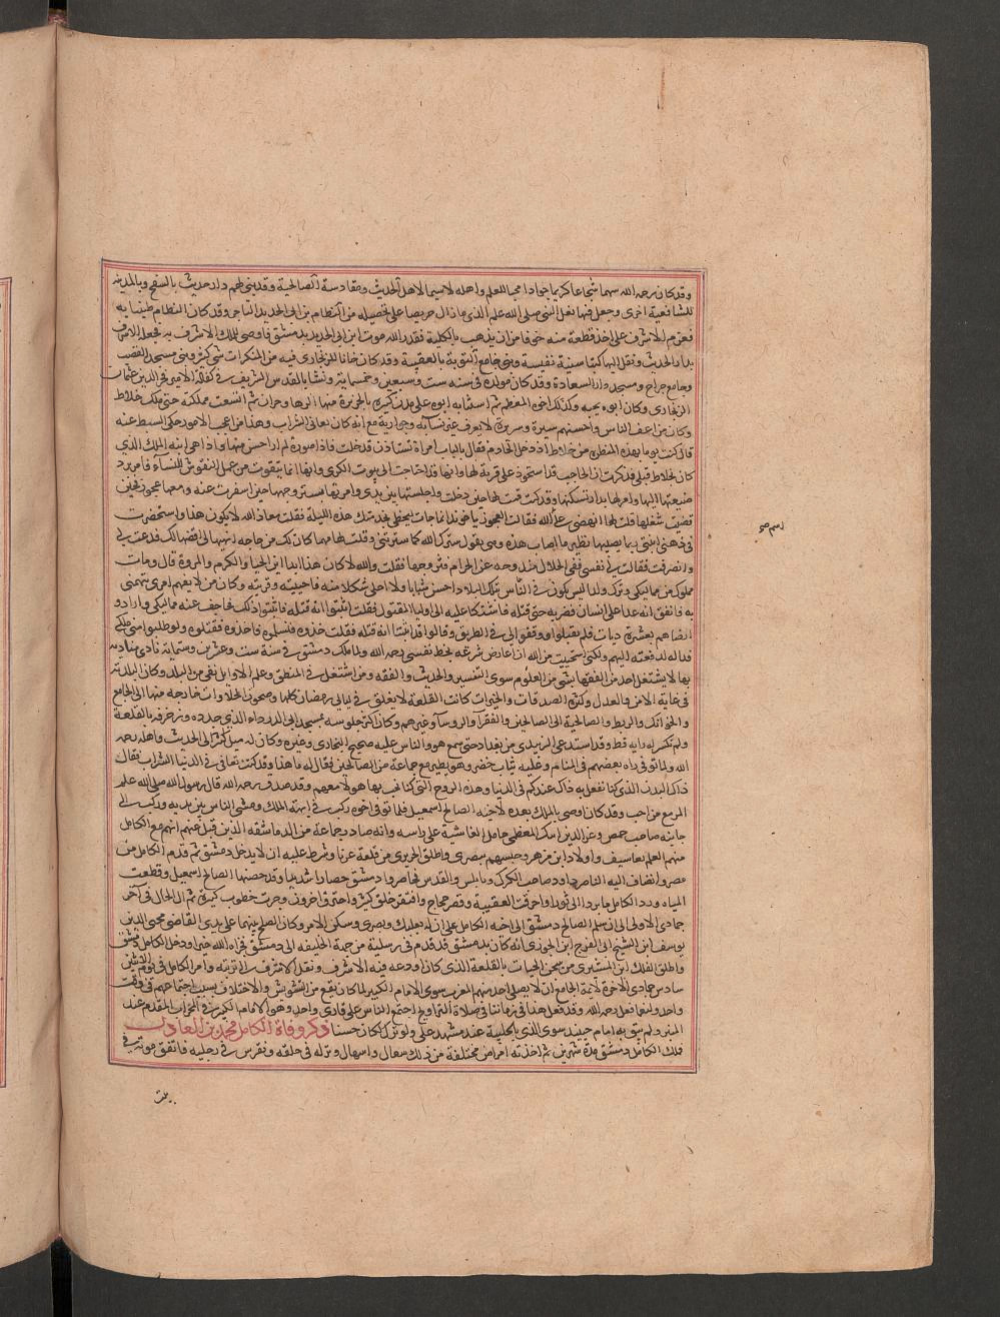 وقد كان رحمه الله شهما شجاعا كريما جوادا محبا للعلم واهله لاسيما لاهل الحديث ومقادسة الصالحية وقد بنى لهم دار حديث بالسفح وبالمدينه
للشافعية اخرى وجعل فيها نعل النبى صلى الله علم الذى ما زال حريصا على تحصيله من النظام بن ابى الحديد التاجر وقد كان النظام ضنينا به
فعزم الاشرف على اخذ قطعة منه خوفا من ان يذهب بالكلية فقدر الله موت ابن ابى الحديد بدمشق فاوصى للملك الاشرف به فجعله الاشرف
بدار الحديث ونقل اليها كتبا سنية نفيسة وبنى جامع التوبة بالعقيبة وقد كان خانا للزنجارى فيه من المنكرات شى كثير وبنى مسجد القصب
وجامع جراح ومسجد دار السعادة وقد كان مولده فى سنه ست وسبعين وخمسماية ونشا بالقدس الشريف فى كفالة الامير فخر الدين عثمان
الزنجارى وكان ابوه يحبه وكذلك اخوه المعظم ثم استنابه ابوه على مدن كثيرة بالجزيرة منها الرها وحران ثم اتسعت مملكته حتى ملك خلاط
وكان من اعف الناس واحسنهم سيرة وسريرة لا يعرف غير نسآيه وجواريه مع انه كان يعانى الشراب وهذا من اعجب الامور حكى السبط عنه
قال كنت يوما بهذه المنظرة من خلاط اذ دخل الخادم فقال بالباب امراة تستاذن فدخلت فاذا صورة لم ار احسن منها واذا هى ابنه الملك الذى
كان بخلاط قبلى فذكرت ان الحاجب قد استحوذ على قرية لها وانها قد احتاجت الى بيوت الكرى وانها انما تتقوت من عمل النقوش للنسآء فامر برد
ضيعتها اليها وامر لها بدار تسكنها وقد كنت قمت لها حين دخلت واجلستها بين يدى وامرتها بستر وجهها حين اسفرت عنه ومعها عجوز فحين
قضيت شغلها قلت لها انهضى على اسم الله فقالت العجوز ياخوند انما جات لتحظى بخدمتك هذه الليلة فقلت معاذ الله لا يكون هذا واستحضرت
فى ذهنى ابنتى ربما يصيبها نظير ما اصاب هذه وهى تقول سترك الله كما سترتنى وقلت لها مهما كان لك من حاجه انهيها الى اقضها لك فدعت لى
وانصرفت فقالت لى نفسى ففى الحلال مندوحه عن الحرام فتزوجها فقلت والله لا كان هذا ابدا اين الحيا والكرم والمروة قال ومات
مملوك من مماليكى وترك ولدا ليس يكون فى الناس بتلك البلاد احسن شبابا ولا احلى شكلا منه فاحببته وقربته وكان من لا يفهم امرى يتهمنى
به فاتفق انه عدا على انسان فضربه حتى قتله فاشتكا عليه الى اوليا المقتول فقلت اثبتوا انه قتله فاثبتوا ذلك فحاجف عنه مماليكى وارادو
ارضاهم بعشرة ديات فلم يقبلوا ووقفوا لى فى الطريق وقالوا قد اثبتنا انه قتله فقلت خذوه فتسلموه فاخذوه فقتلوه ولو طلبوا منى ملكى
فداله لدفعته اليهم ولكنى استحييت من الله ان اعارض شرعه بحظ نفسى رحمه الله ولما ملك دمشق فى سنة ست وعشرين وستماية نادى مناديه
بها لا يشتغل احد من الفقها بشى من العلوم سوى التفسير والحديث والفقه ومن اشتغل فى المنطق وعلم الاوايل نفى من البلد وكان البلد به
فى غاية الامن والعدل وكثرة الصدقات والخيرات كانت القلعة لا يغلق فى ليالى رمضان كلها وصحون الحلاوات خارجه منها الى الجامع
والخوانك والربط والصالحية الى الصالحين والفقرآ والروسآ وغيرهم وكان اكثر جلوسه بمسجد ابى الدرداء الذى جدده وزخرفه بالقلعة
ولم تكسر له رايه قط وقد استدعى الزبيدى من بغداد حتى سمع هو والناس عليه صحيح البخارى وغيره وكان له ميل كثير الى الحديث واهله رحمه
الله ولما توفى راه بعضهم فى المنام وعليه ثياب خضر وهو يطير مع جماعة من الصالحين فقال له ما هذا وقد كنت تعانى فى الدنيا الشراب فقال
ذاك البدن الذى كنا نفعل به ذاك عندكم فى الدنيا وهذه الروح التى كنا نحب بها هولا معهم وقد صدق رحمه الله قال رسول الله صلى الله علم
المرء مع من احب وقد كان اوصى بالملك بعده لاخيه الصالح اسمعيل فلما توفى اخوه ركب فى ابهة الملك ومشى الناس بين يديه وركب الى
جانبه صاحب حمص وعز الدين ايبك المعظمى حامل الغاشية على راسه وانه صادر جماعة من الدماشقه الذين قيل عنهم انهم مع الكامل
منهم العلم تعاسيف واولاد ابن مزهر وحبسهم ببصرى واطلق الحريرى من قلعة عزتا وشرط عليه ان لا يدخل دمشق ثم قدم الكامل من
مصر وانضاف اليه الناصر داود صاحب الكرك ونابلس والقدس فحاصروا دمشق حصارا شديدا وقد حصنها الصالح اسمعيل وقطعت
المياه وردد الكامل ما بردا الى ثورا واحرقت العقيبة وقصر حجاج وافتقر خلق كثير واحترق اخرون وجرت خطوب كثيرة ثم ال الحال فى آخر
جمادى الاولى الى ان سلم الصالح دمشق الى اخيه الكامل على ان له بعلبك وبصرى وسكن الامر وكان الصلح بينهما على يدى القاضى محيى الدين
يوسف ابن الشيخ ابى الفرج ابن الجوزى اتفق انه كان بدمشق قد قدم فى رسلية من جهة الخليفه الى دمشق فجزاه الله خيرا ودخل الكامل دمشق
واطلق الفلك ابن المسيرى من سجن الحيات بالقلعة الذى كان اودعه فيه الاشرف ونقل الاشرف الى تربته وامر الكامل فى يوم الاثنين
سادس جمادى الاخرة لائمة الجامع ان لا يصلى احد منهم المغرب سوى الامام الكبير لما كان يقع من التشويش والاختلاف بسبب اجتماعهم فى وقت
واحد ولنعم ما فعل رحمه الله وقد فعل هذا فى زماننا فى صلاة التراويح اجتمع الناس على قارى واحد وهو الامام الكبير فى المحراب المقدم عند
المنبر ولم يبق به امام حينيذ سوى الذى بالحلبية عند مشهد على ولو ترك لكان حسنا ذكر وفاة الكامل محمد بن العادل
ملك الكامل دمشق مدة شهرين ثم اخذته امراض مختلفة من ذلك سعال واسهال ونزله فى حلقه ونقرس فى رجليه فاتفق موته فى
اسم صح
بيت